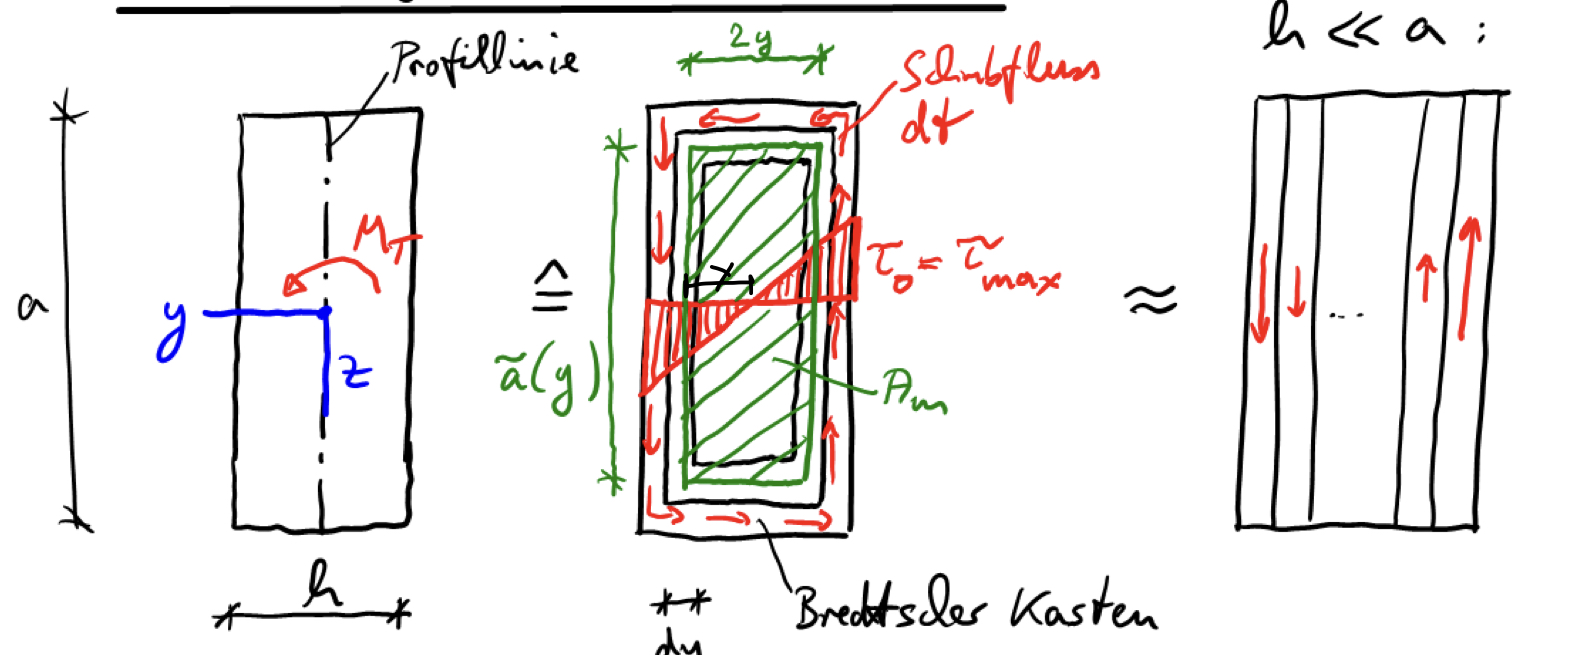 Profillinie
a
M_T
y
z
h
≙
2y
Schubfluss
dt
ã(y)
y
τ_0 = τ_max
A_m
Bredtscher Kasten
dy
≈
h << a :
...